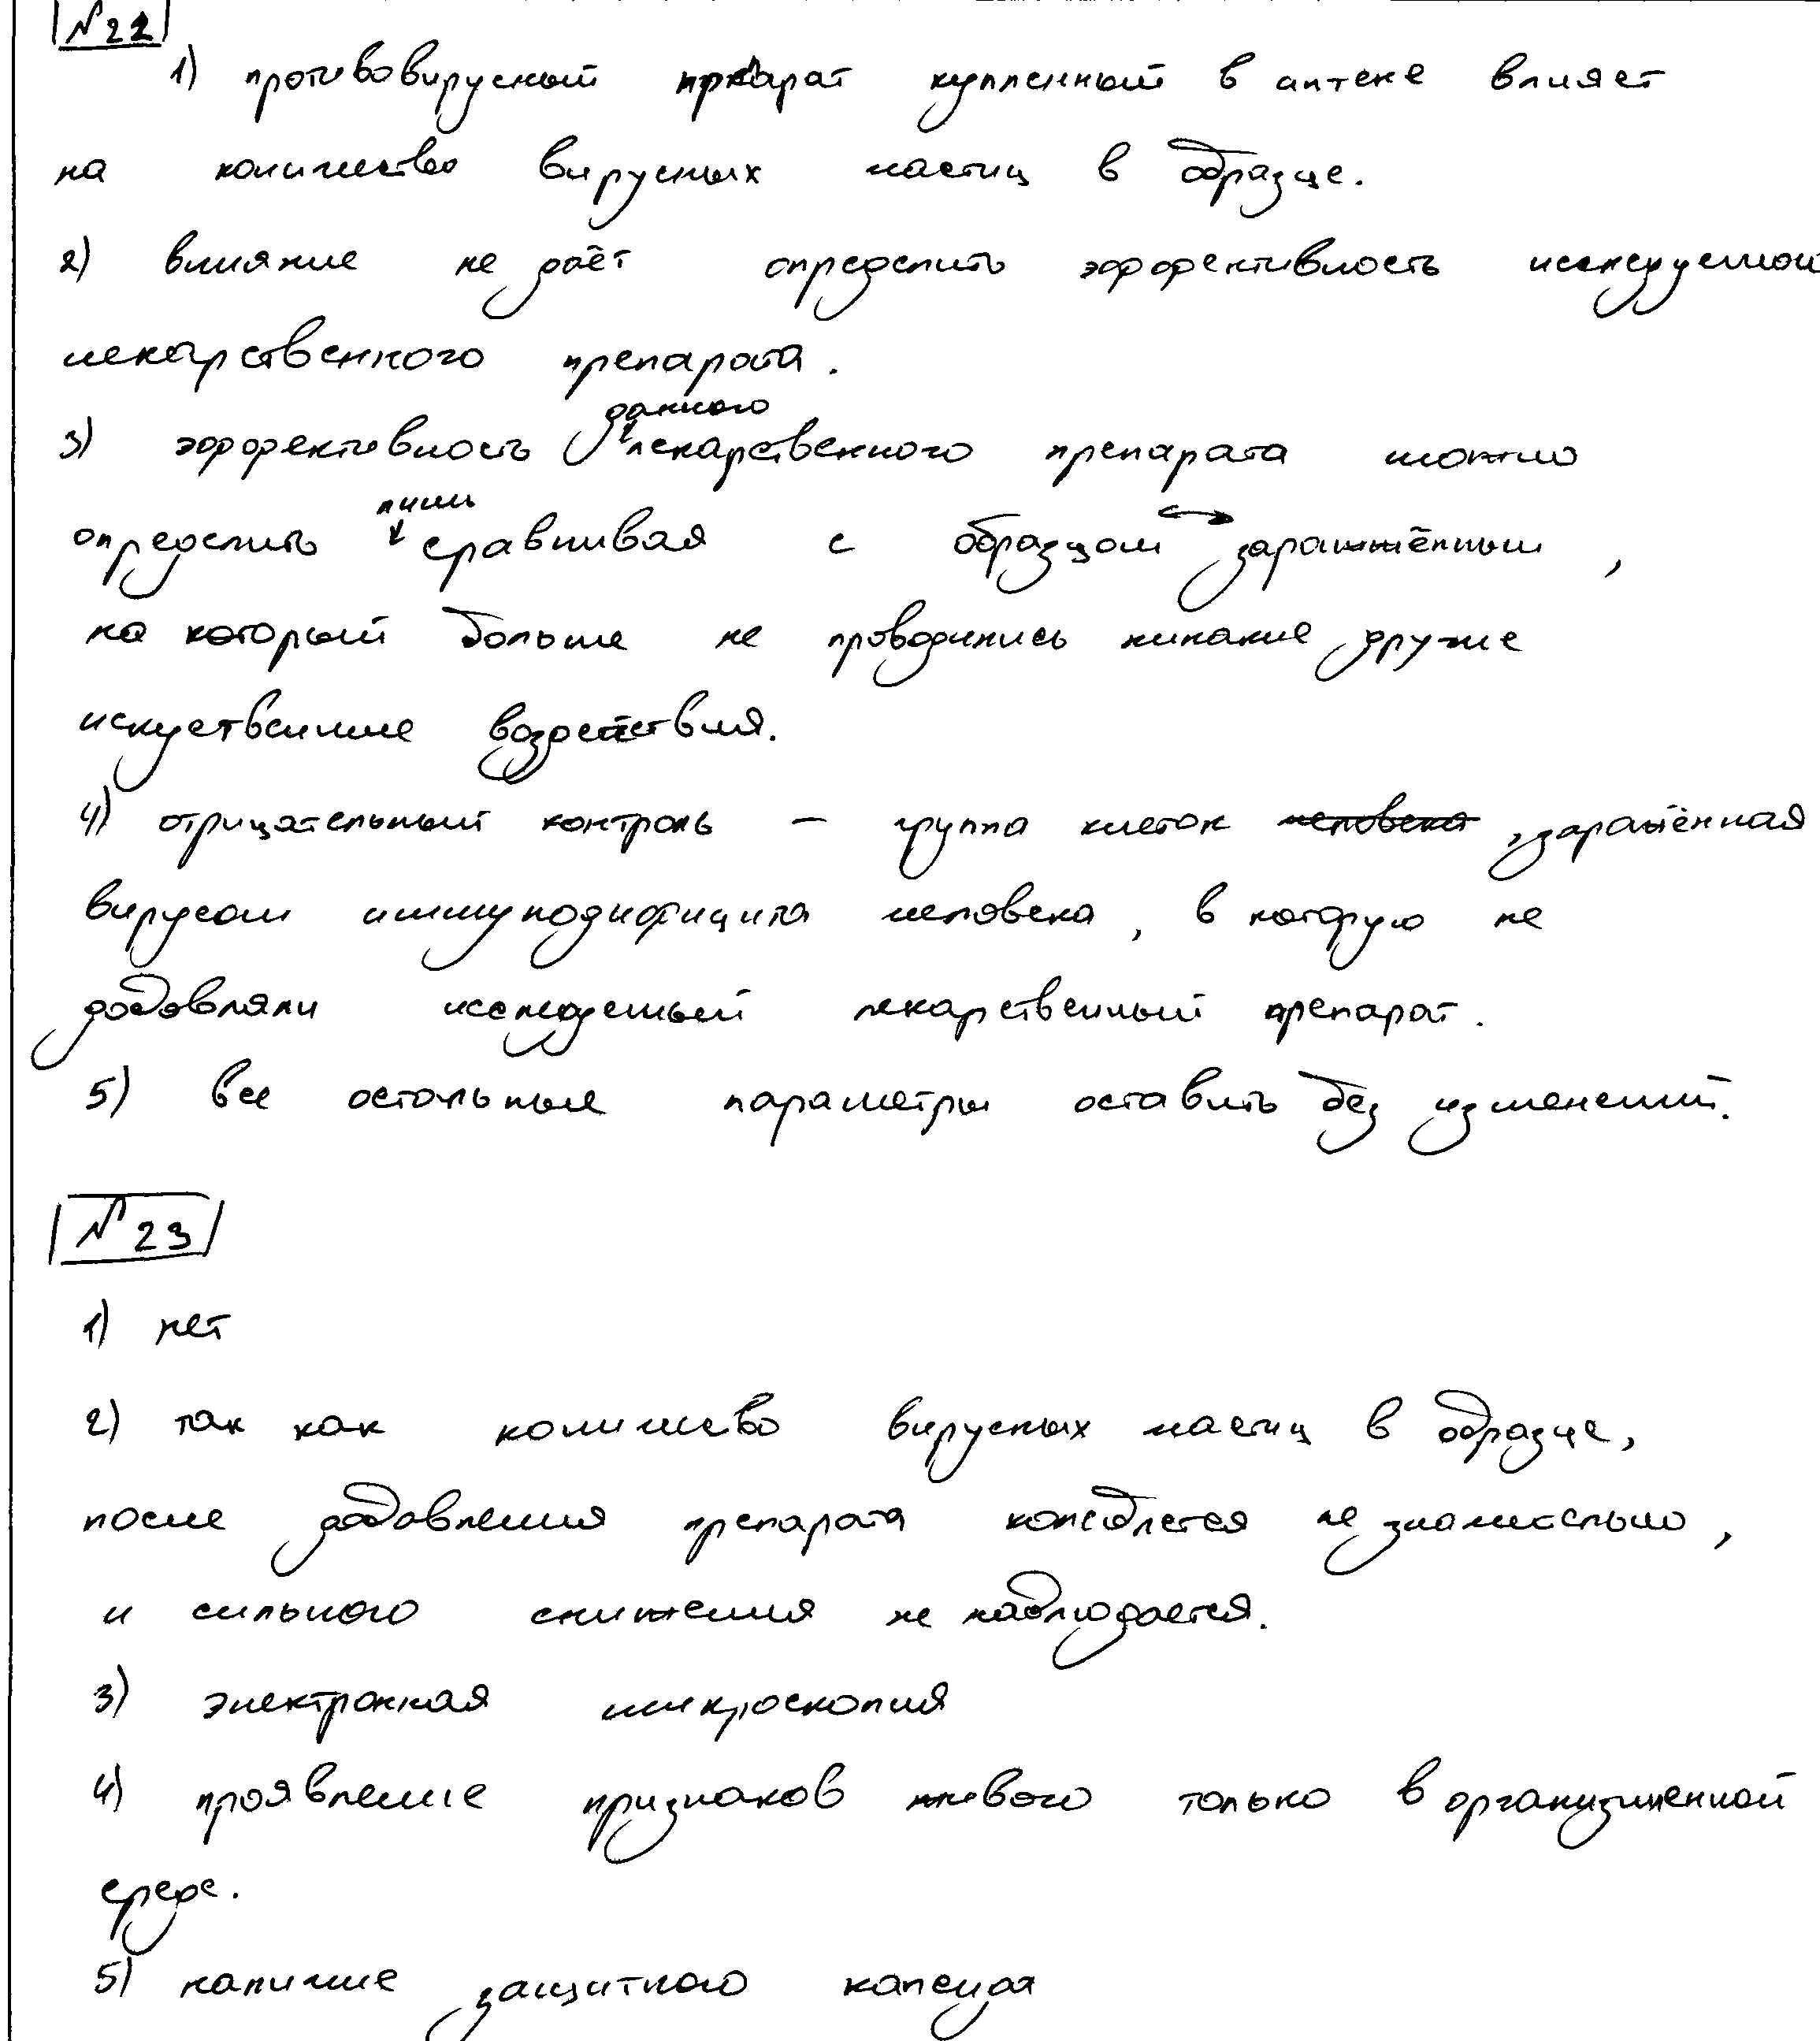 №22
1) противовирусный препарат купленный в аптеке влияет
на количество вирусных частиц в образце.
2) влияние не даёт определить эффективность исследуемого
лекарственного препарата.
данного
3) эффективность лекарственного препарата можно
лишь
определить сравнивая с образцом заражённым,
на который больше не проводились никакие другие
искуственные воздействия.
4) отрицательный контроль – группа клеток человека, заражённая
вирусом иммунодифицита человека, в которую не
добовляли исследуемый лекарственный препарат.
5) все остольные параметры оставить без изменений.
№23
1) нет
2) так как количесво вирусных частиц в образце,
после добовления препарата колеблется не значительно,
и сильного снижения не наблюдается.
3) электронная микроскопия
4) проявление признаков живого только в организменной
среде.
5) наличие защитного капсида